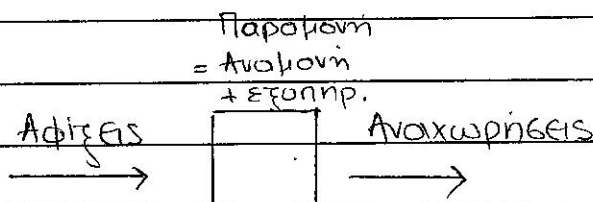 Παραμονή
= Αναμονή
+ εξυπηρ.
Αφίξεις
Αναχωρήσεις